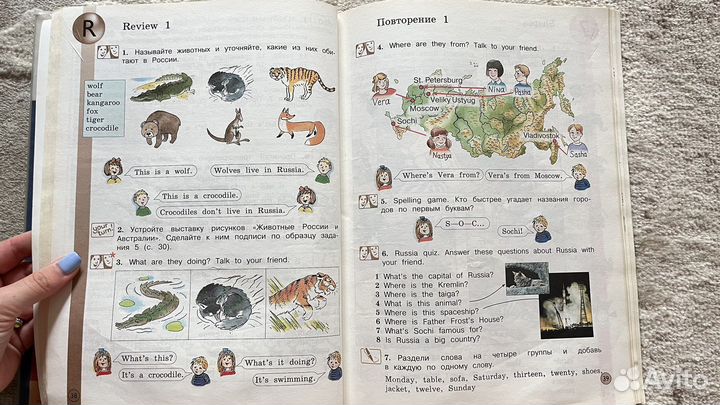 R
Review 1
1. Называйте животных и уточняйте, какие из них оби-
тают в России.
wolf
bear
kangaroo
fox
tiger
crocodile
This is a wolf.
Wolves live in Russia.
This is a crocodile.
Crocodiles don't live in Russia.
your turn!
2. Устройте выставку рисунков «Животные России и
Австралии». Сделайте к ним подписи по образцу зада-
ния 5 (с. 30).
3. What are they doing? Talk to your friend.
What's this?
What's it doing?
It's a crocodile.
It's swimming.
38
Повторение 1
4. Where are they from? Talk to your friend.
St. Petersburg
Vera
Nina
Pasha
Veliky Ustyug
Moscow
Sochi
Nastya
Vladivostok
Sasha
Where's Vera from?
Vera's from Moscow.
5. Spelling game. Кто быстрее угадает названия горо-
дов по первым буквам?
S—O—C...
Sochi!
6. Russia quiz. Answer these questions about Russia with
your friend.
1 What's the capital of Russia?
2 Where is the Kremlin?
3 Where is the taiga?
4 What is this animal?
5 Where is this spaceship?
6 Where is Father Frost's House?
7 What's Sochi famous for?
8 Is Russia a big country?
7. Раздели слова на четыре группы и добавь
в каждую по одному слову.
Monday, table, sofa, Saturday, thirteen, twenty, shoes,
jacket, twelve, Sunday
39
Avito